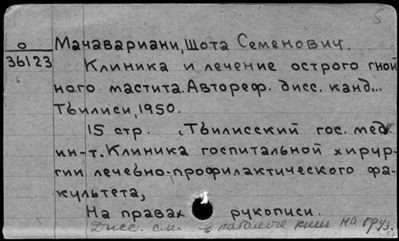 о Мачавариани, Шота Семенович.
36123 Клиника и лечение острого гной
ного мастита. Автореф. дисс. канд...
Тбилиси, 1950.
15 стр. Тбилисский гос. мед.
ин-т. Клиника госпитальной хирур-
гии лечебно-профилактического фа-
культета,
На правах рукописи.
Дисс. см. в каталоге книг на груз.